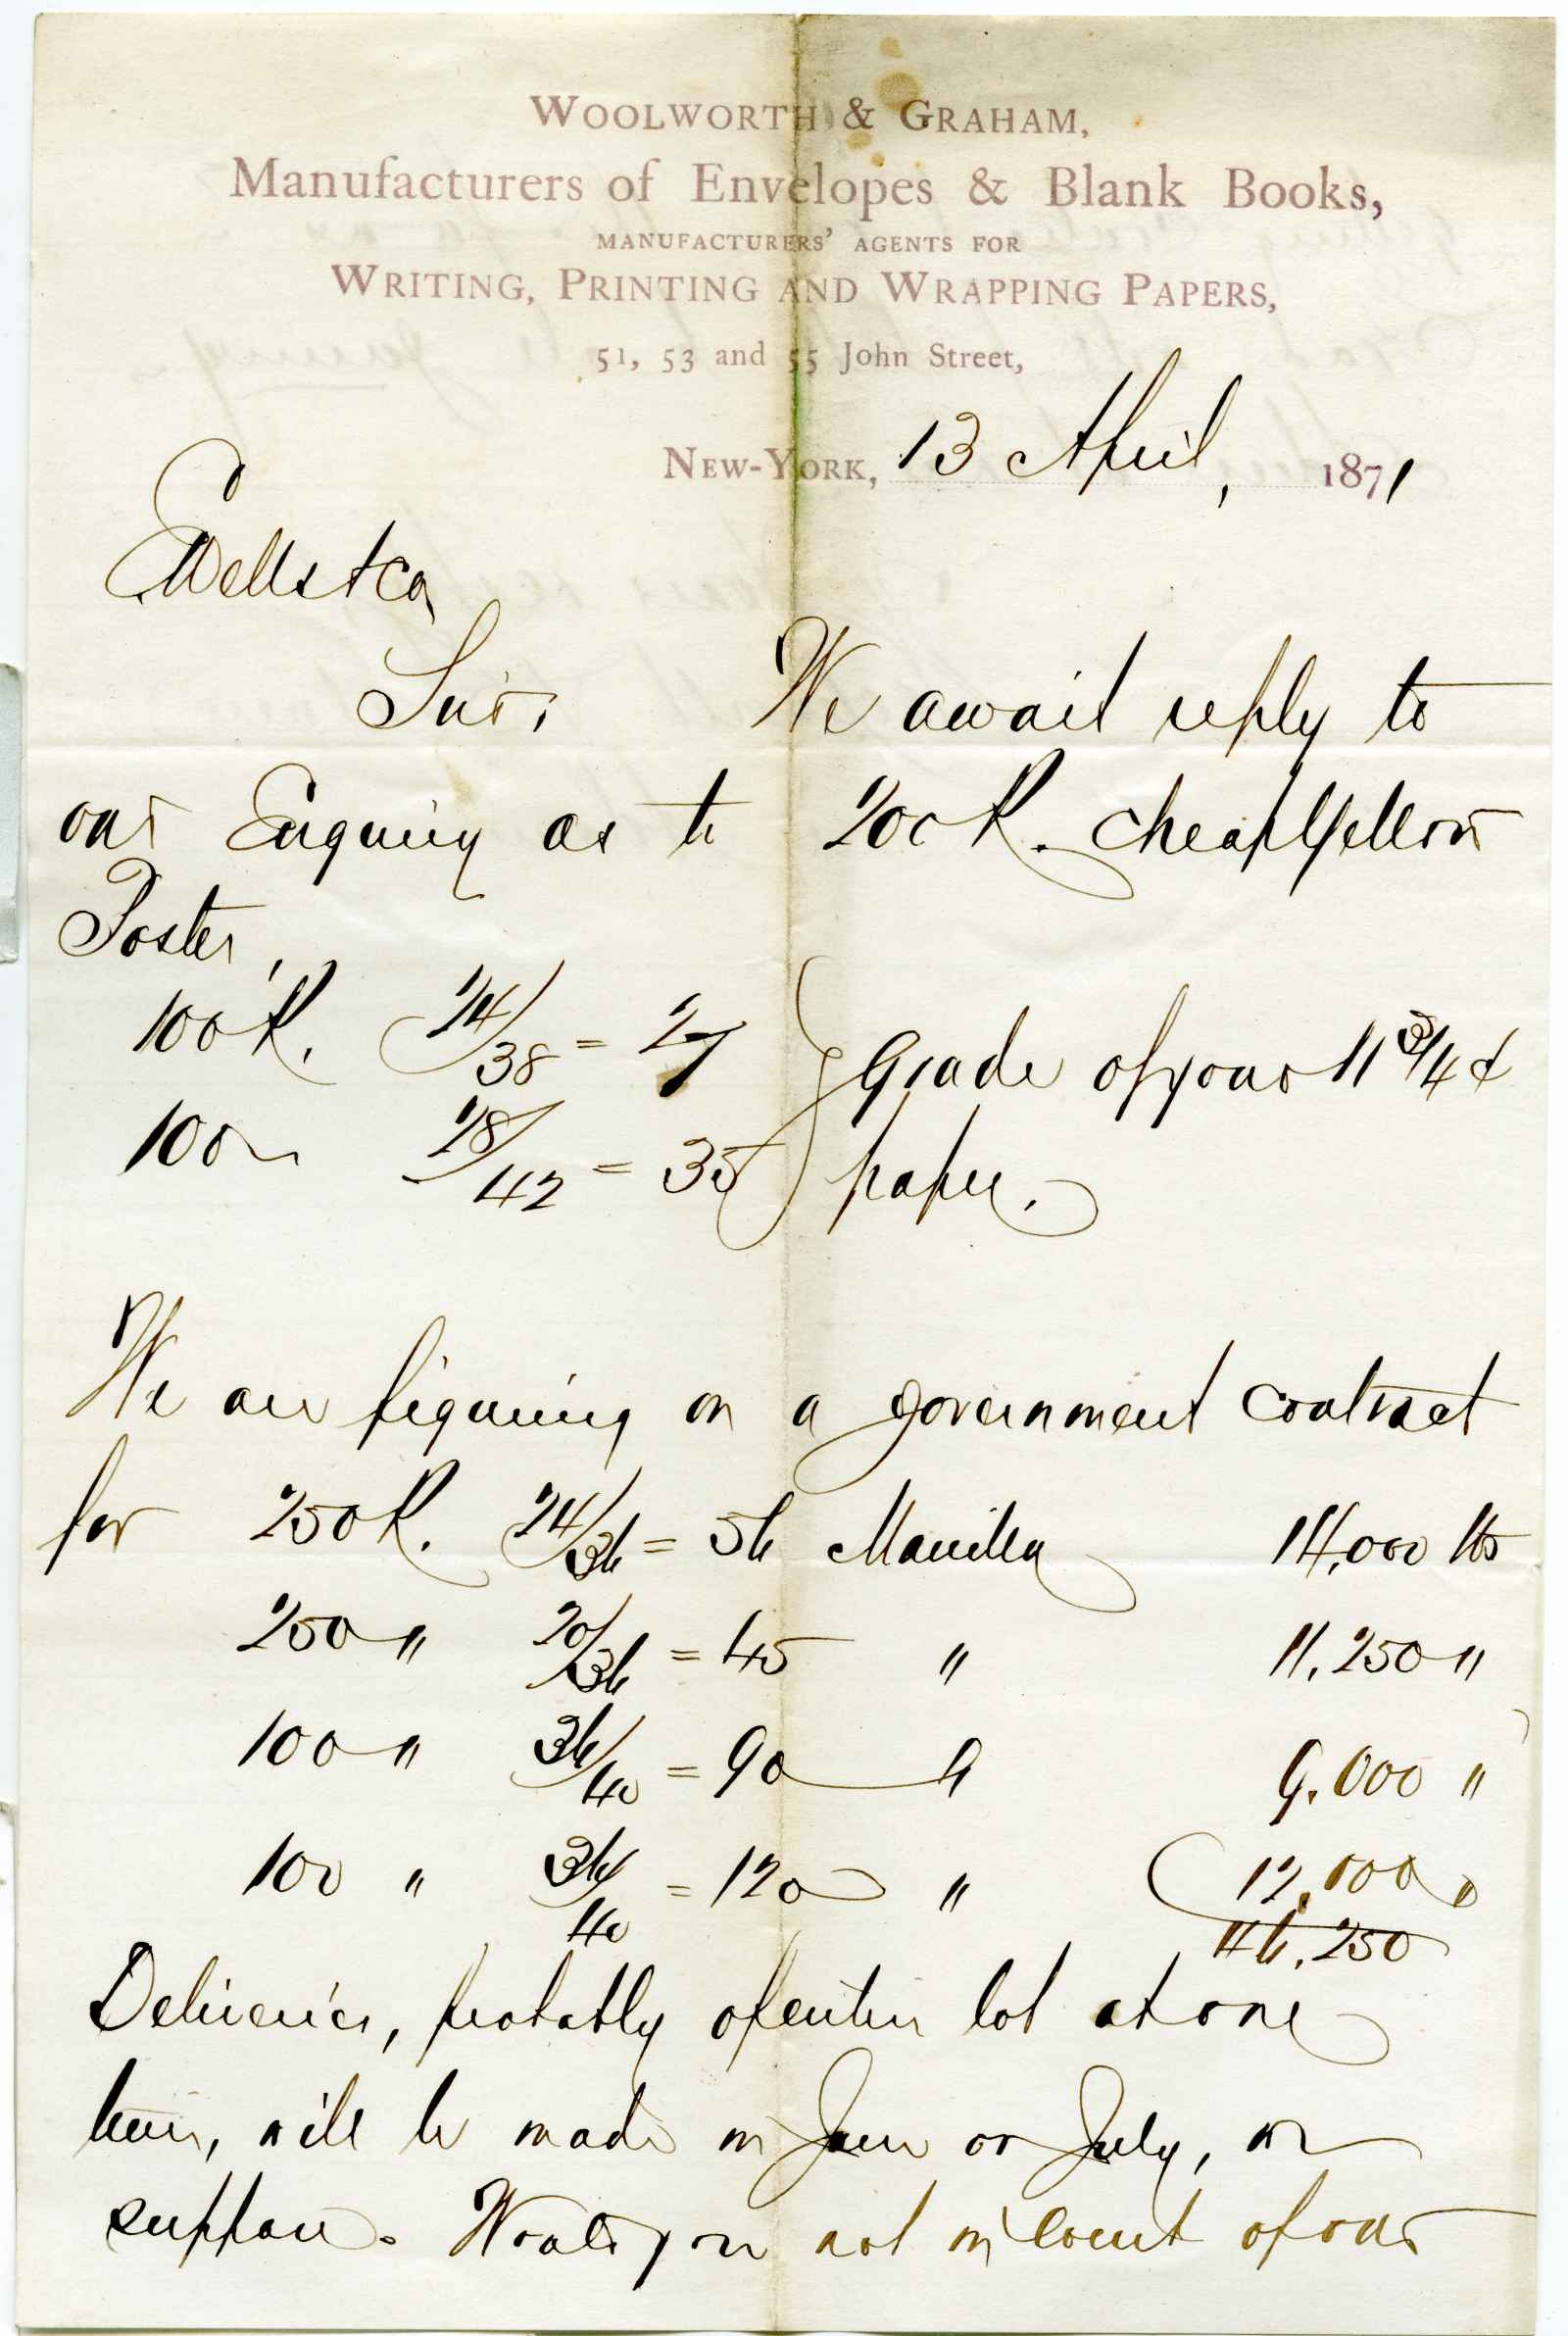 WOOLWORTH & GRAHAM,
Manufacturers of Envelopes & Blank Books,
MANUFACTURERS' AGENTS FOR
WRITING, PRINTING AND WRAPPING PAPERS,
51, 53 and 55 John Street,
NEW-YORK, 13 April, 1871
Wells & Co
Sirs, We await reply to
our Enquiry as to 200 R. cheap Yellow
Poster,
100 R. 24/38 = 27 Grade of your 11 3/4 ¢
100 " 28/42 = 35 paper.
We are figuring on a government contract
for 250 R. 24/36 = 56 Manilla 14,000 lbs
250 " 20/36 = 45 " 11,250 "
100 " 36/40 = 90 " 9,000 "
100 " 36/40 = 120 " 12,000 "
46,250
Deliveries, probably of entire lot at one
time, will be made in June or July, we
suppose. Would you not in event of our